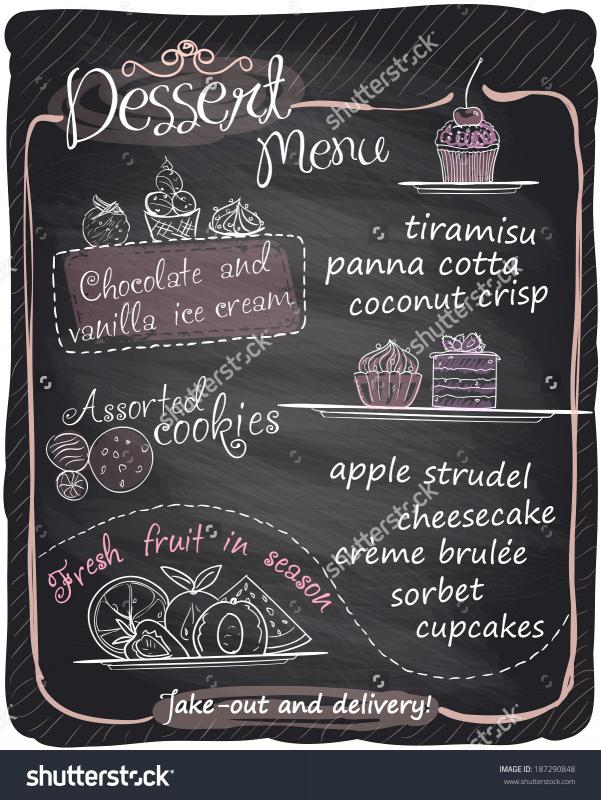 Dessert
Menu
Chocolate and
vanilla ice cream
tiramisu
panna cotta
coconut crisp
Assorted
cookies
apple strudel
cheesecake
créme brulée
sorbet
cupcakes
Fresh fruit in season
Take-out and delivery!
shutterstock
shutterstock
shutterstock
shutterstock
shutterstock
shutterstock
shutterstock
shutterstock
IMAGE ID: 187290848
www.shutterstock.com